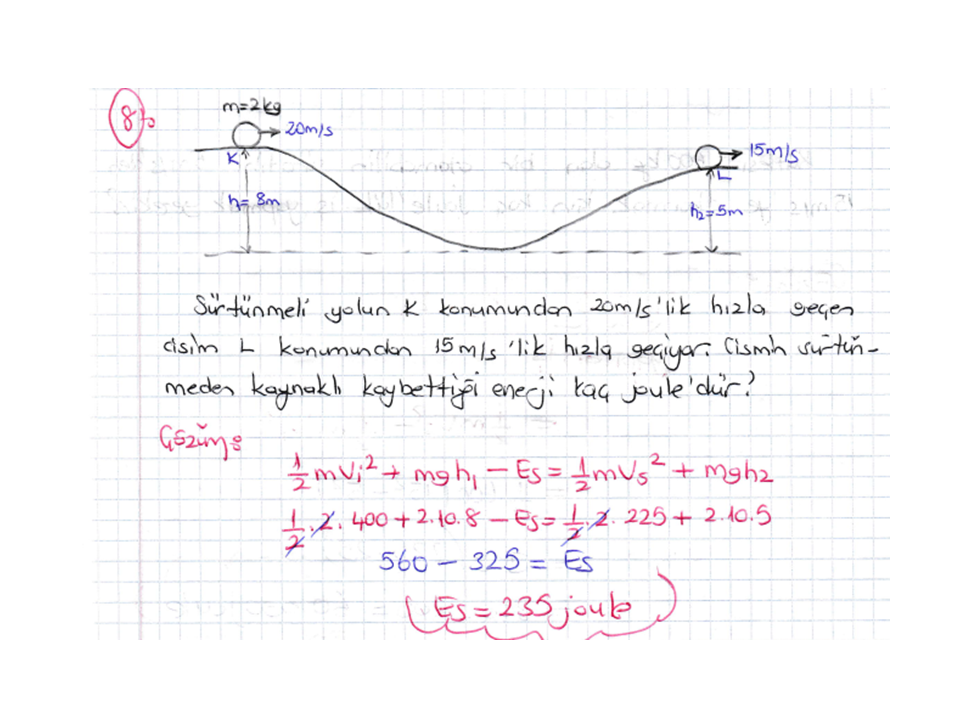 8)
m=2kg
20m/s
K
h=8m
15m/s
L
h₂=5m
Sürtünmeli yolun K konumundan 20m/s'lik hızla geçen
cisim L konumundan 15m/s'lik hızla geçiyor. Cismin sürtün-
meden kaynaklı kaybettiği enerji kaç joule'dür?
Çözüm:
1/2 mVi² + mgh₁ − Es = 1/2 mVs² + mgh₂
1/2 . 2 . 400 + 2.10.8 − Es = 1/2 . 2 . 225 + 2.10.5
560 − 325 = Es
Es = 235 joule